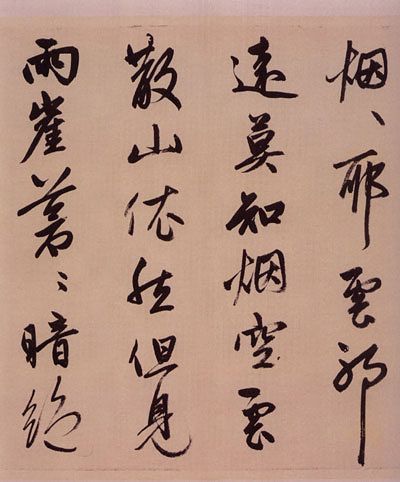 烟〻耶雲耶
遠莫知烟空雲
散山依然但見
兩崖蒼〻暗絕